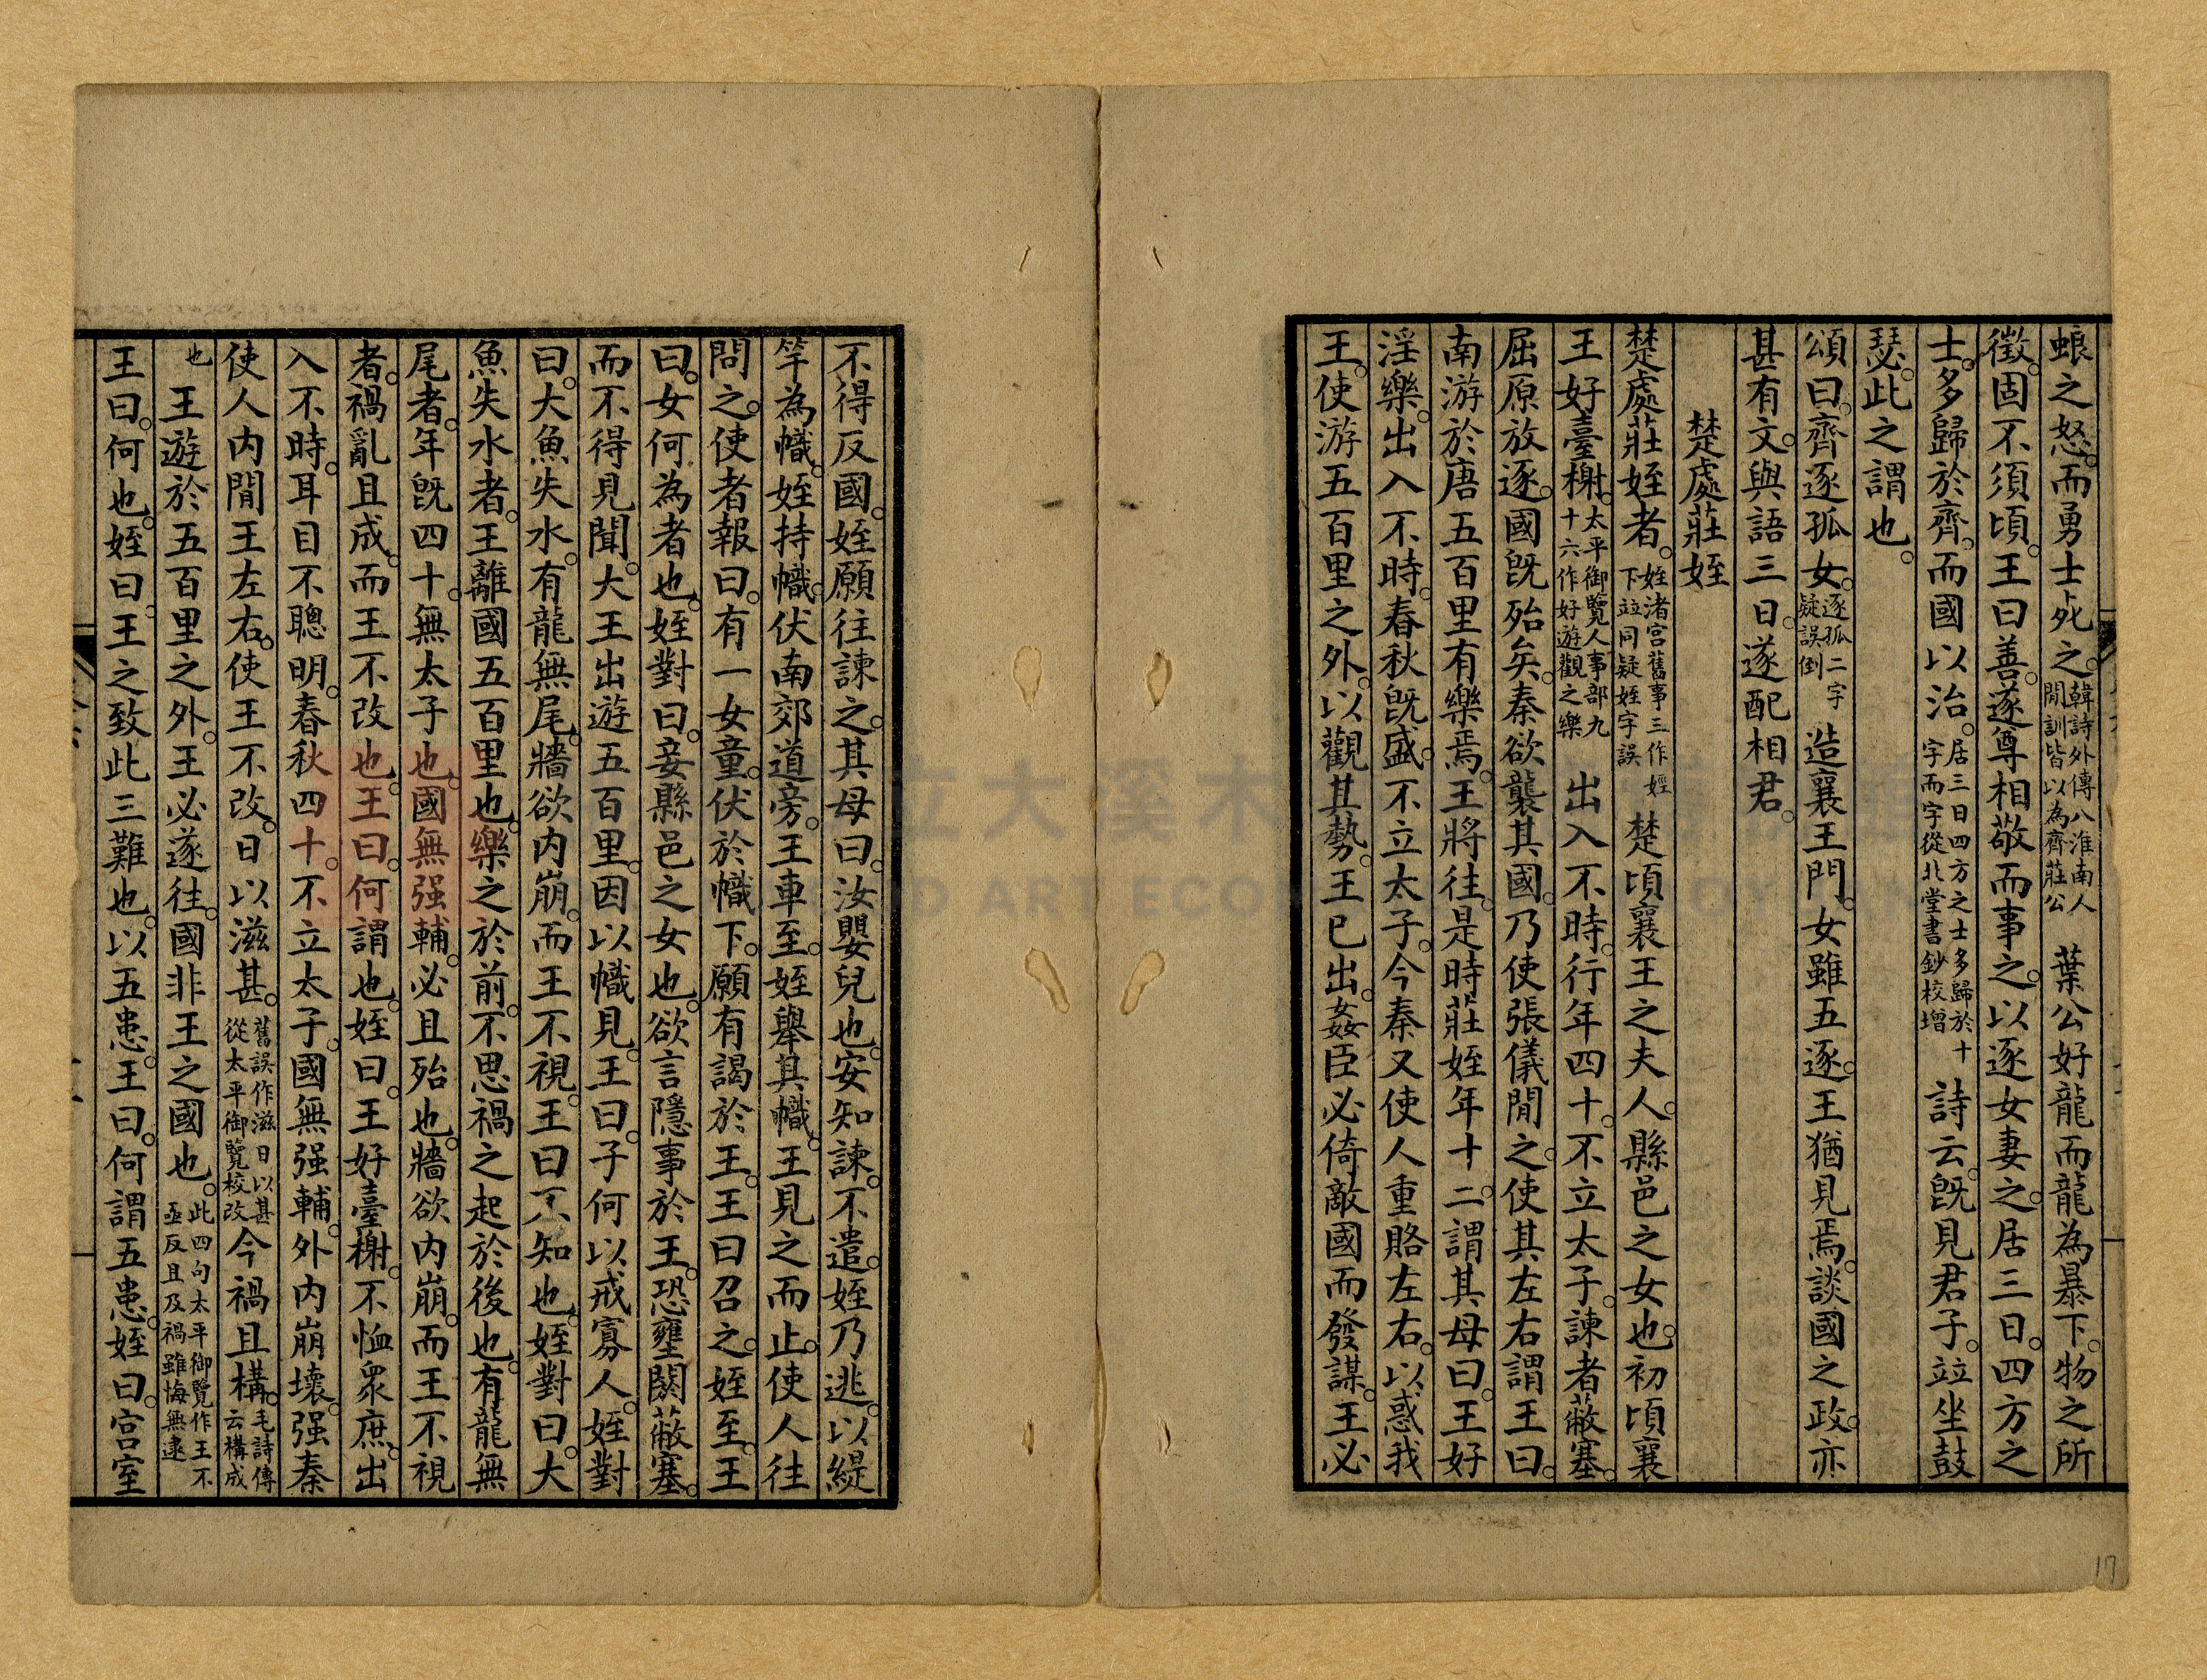 蜋之怒。而勇士死之。韓詩外傳八淮南人閒訓皆以為齊莊公葉公好龍而龍為暴下。物之所
徵。固不須頃。王曰善。遂尊相敬而事之。以逐女妻之。居三日。四方之
士。多歸於齊。而國以治。居三日四方之士多歸於十字而字從北堂書鈔校增詩云。既見君子。竝坐鼓
瑟。此之謂也。
頌曰。齊逐孤女。逐孤二字疑誤倒造襄王門。女雖五逐。王猶見焉。談國之政。亦
甚有文。與語三日。遂配相君。
楚處莊姪
楚處莊姪者。姪渚宮舊事三作娙下竝同疑姪字誤楚頃襄王之夫人。縣邑之女也。初頃襄
王好臺榭。太平御覽人事部九十六作好遊觀之樂出入不時。行年四十。不立太子。諫者蔽塞。
屈原放逐。國既殆矣。秦欲襲其國。乃使張儀閒之。使其左右謂王曰。
南游於唐五百里有樂焉。王將往。是時莊姪年十二。謂其母曰。王好
淫樂。出入不時。春秋既盛。不立太子。今秦又使人重賂左右。以惑我
王。使游五百里之外。以觀其勢。王已出。姦臣必倚敵國而發謀。王必
不得反國。姪願往諫之。其母曰。汝嬰兒也。安知諫。不遣。姪乃逃。以緹
竿為幟。姪持幟。伏南郊道旁。王車至。姪舉其幟。王見之而止。使人往
問之。使者報曰。有一女童。伏於幟下。願有謁於王。王曰召之。姪至。王
曰。女何為者也。姪對曰。妾縣邑之女也。欲言隱事於王。恐壅閼蔽塞。
而不得見聞。大王出遊五百里。因以幟見。王曰。子何以戒寡人。姪對
曰。大魚失水。有龍無尾。牆欲内崩。而王不視。王曰不知也。姪對曰。大
魚失水者。王離國五百里也。樂之於前。不思禍之起於後也。有龍無
尾者。年既四十。無太子也。國無强輔。必且殆也。牆欲内崩。而王不視
者。禍亂且成。而王不改也。王曰。何謂也。姪曰。王好臺榭。不恤眾庶。出
入不時。耳目不聰明。春秋四十。不立太子。國無强輔。外内崩壞。强秦
使人内閒王左右。使王不改。日以滋甚。舊誤作滋日以甚從太平御覽校改今禍且構。毛詩傳云構成
也王遊於五百里之外。王必遂往。國非王之國也。此四句太平御覽作王不亟反且及禍雖悔無逮
王曰。何也。姪曰。王之致此三難也。以五患。王曰。何謂五患。姪曰。宮室